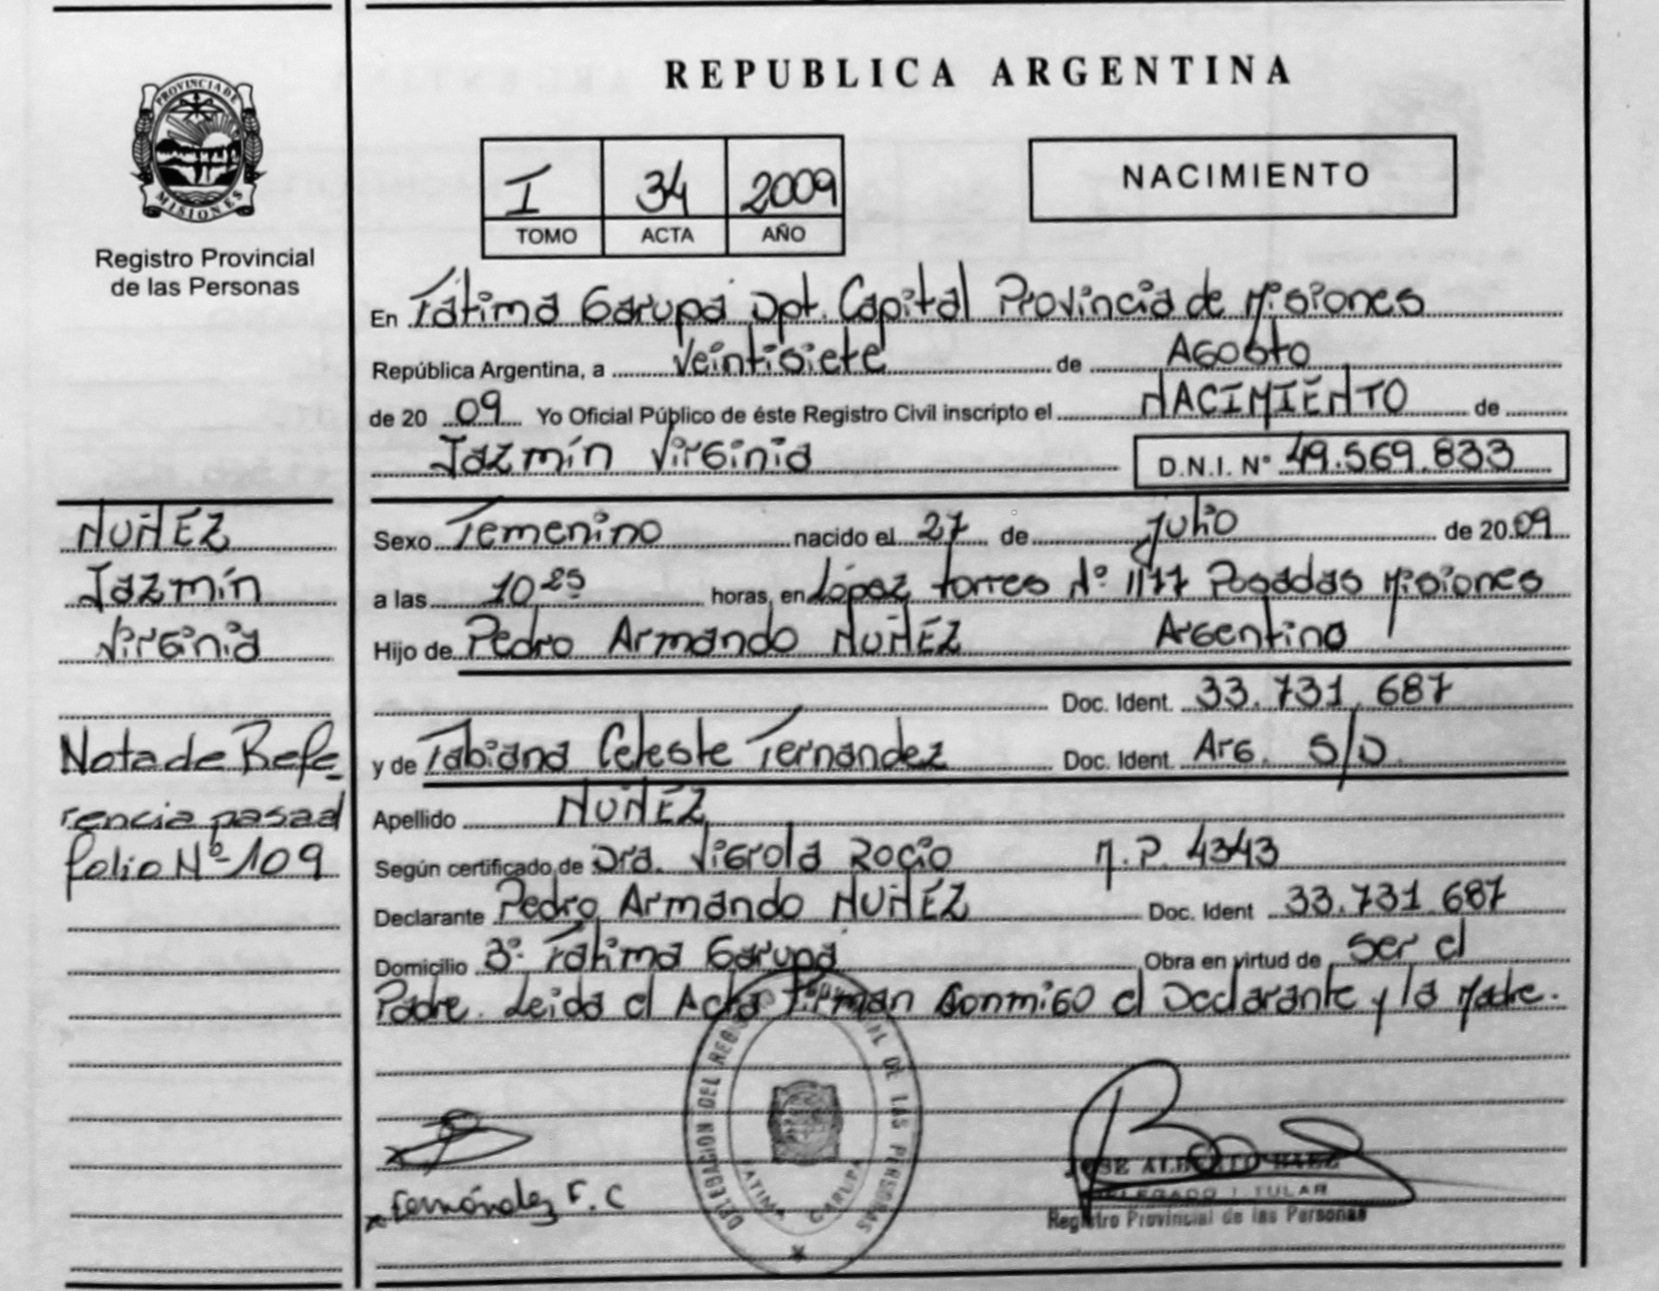 PROVINCIA DE
MISIONES
Registro Provincial
de las Personas
REPUBLICA ARGENTINA
I 34 2009
TOMO ACTA AÑO
NACIMIENTO
En Fátima Garupá Dpt. Capital Provincia de Misiones
República Argentina, a Veintisiete de Agosto
de 20 09 Yo Oficial Público de éste Registro Civil inscripto el NACIMIENTO de
Jazmín Virginia D.N.I. N° 49.569.833
NUÑEZ
Jazmín
Virginia
Nota de Refe_
rencia pasad
folio Nº 109
Sexo Femenino nacido el 27 de Julio de 20 09
a las 10 25 horas, en López torres N° 1177 Posadas Misiones
Hijo de Pedro Armando NUÑEZ Argentino
Doc. Ident. 33.731.687
y de Fabiana Celeste Fernandez Doc. Ident. Arg. S/D.
Apellido NUÑEZ
Según certificado de Dra. Vigrola Rocío M.P. 4343
Declarante Pedro Armando NUÑEZ Doc. Ident 33.731.687
Domicilio Bº Fátima Garupá Obra en virtud de ser el
Padre. Leida el Acta Firman Conmigo el Declarante y la Madre.
DELEGACION DEL REGISTRO PROVINCIAL DE LAS PERSONAS
FATIMA GARUPA
x Fernández F. C
JOSE ALBERTO BAEZ
DELEGADO TITULAR
Registro Provincial de las Personas